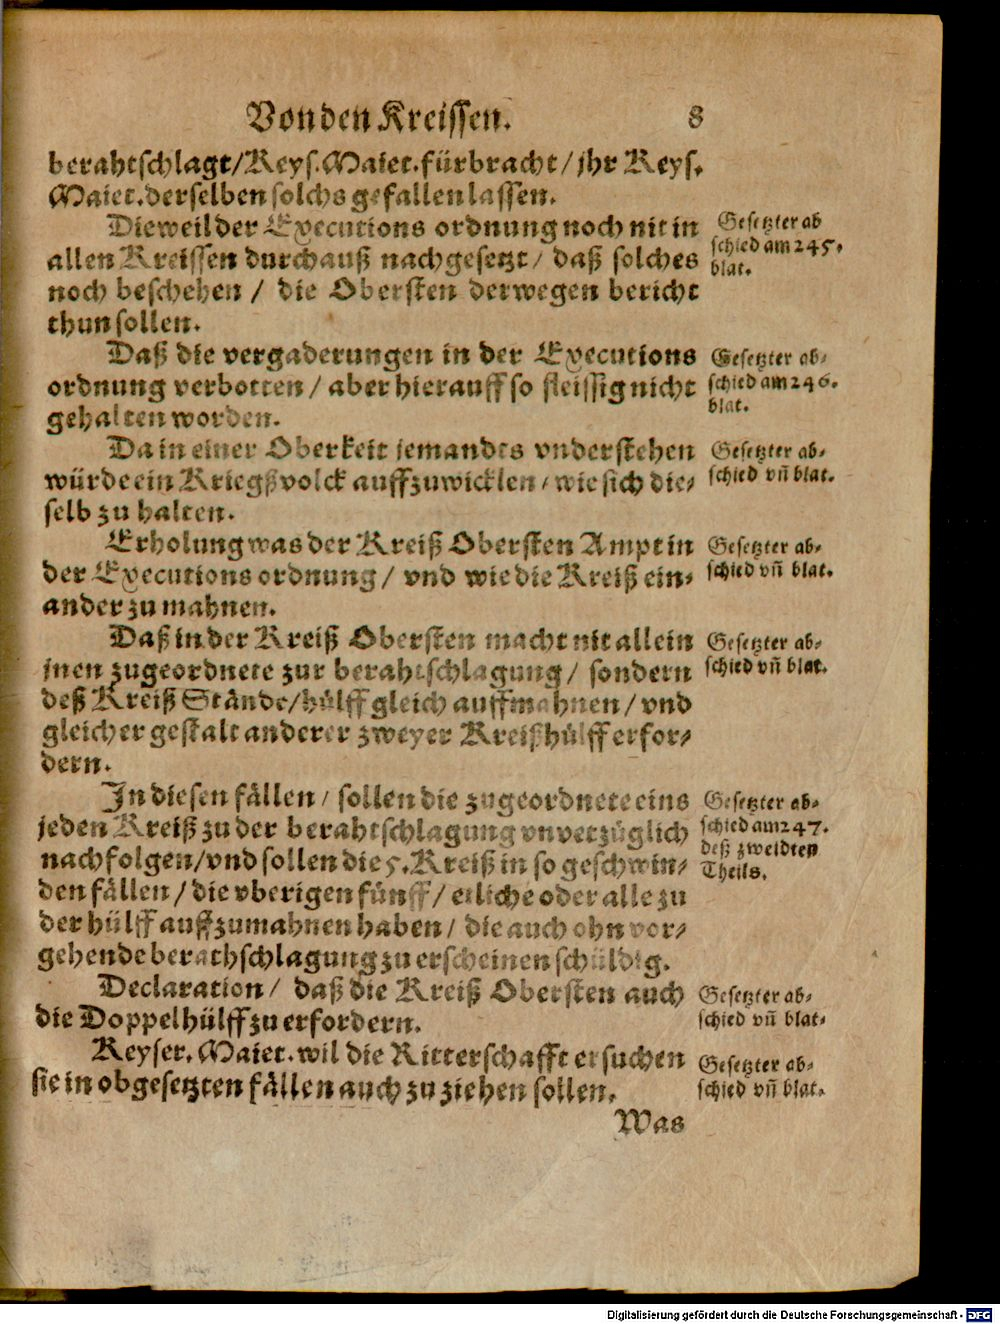 Von den Kreissen. 8
berahtschlagt/Keys. Maiet. fürbracht/jhr Keys.
Maiet. derselben solchs gefallen lassen.
Dieweil der Executions ordnung noch nit in
allen Kreissen durchauß nachgesetzt/ daß solches
noch beschehen / die Obersten derwegen bericht
thun sollen.
Gesetzter ab
schied am 245.
blat.
Daß die vergaderungen in der Executions
ordnung verbotten / aber hierauff so fleissig nicht
gehalten worden.
Gesetzter ab-
schied am 246.
blat.
Da in einer Oberkeit jemandes vnderstehen
würde ein Kriegßvolck auffzuwicklen/ wie sich die-
selb zu halten.
Gesetzter ab-
schied vñ blat.
Erholung was der Kreiß Obersten Ampt in
der Executions ordnung/ vnd wie die Kreiß ein-
ander zu mahnen.
Gesetzter ab-
schied vñ blat.
Daß in der Kreiß Obersten macht nit allein
jnen zugeordnete zur berahtschlagung/ sondern
deß Kreiß Stände/hülff gleich auffmahnen/ vnd
gleicher gestalt anderer zweyer Kreißhülff erfor-
dern.
Gesetzter ab-
schied vñ blat.
In diesen fällen/ sollen die zugeordnete eins
jeden Kreiß zu der berahtschlagung vnverzüglich
nachfolgen/vnd sollen die 5. Kreiß in so geschwin-
den fällen / die vberigen fünff/ etliche oder alle zu
der hülff auffzumahnen haben/ die auch ohn vor-
gehende berathschlagung zu erscheinen schüldig.
Gesetzter ab-
schied am 247.
deß zweidten
Theils.
Declaration/ daß die Kreiß Obersten auch
die Doppelhülff zu erfordern.
Gesetzter ab-
schied vñ blat.
Keyser. Maiet. wil die Ritterschafft ersuchen
sie in obgesetzten fällen auch zu ziehen sollen.
Gesetzter ab-
schied vñ blat.
Was
Digitalisierung gefördert durch die Deutsche Forschungsgemeinschaft - DFG